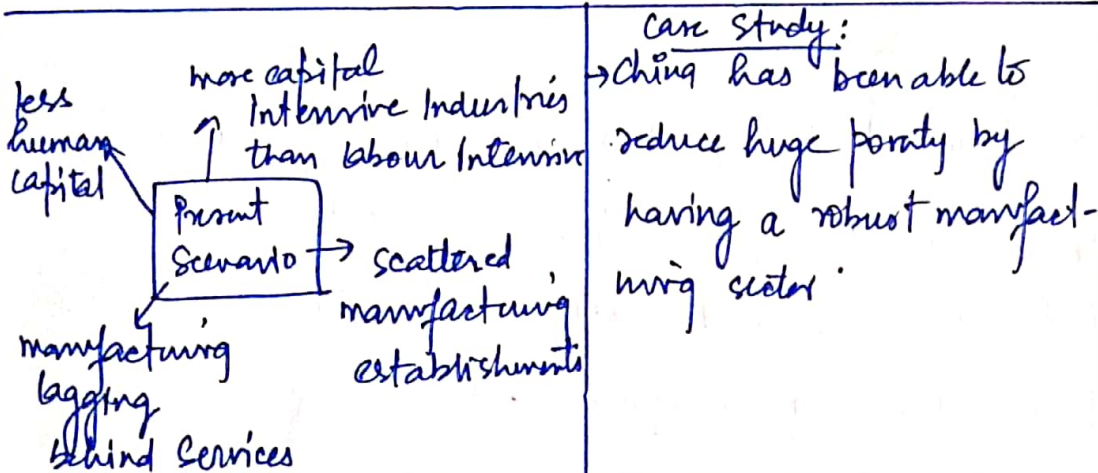 more capital
Intensive Industries
than labour Intensive
less
human
capital
Present
Scenario
→ scattered
manufacturing
establishments
manufacturing
lagging
behind Services
Case Study:
→ China has been able to
reduce huge poverty by
having a robust manufact-
uring sector.